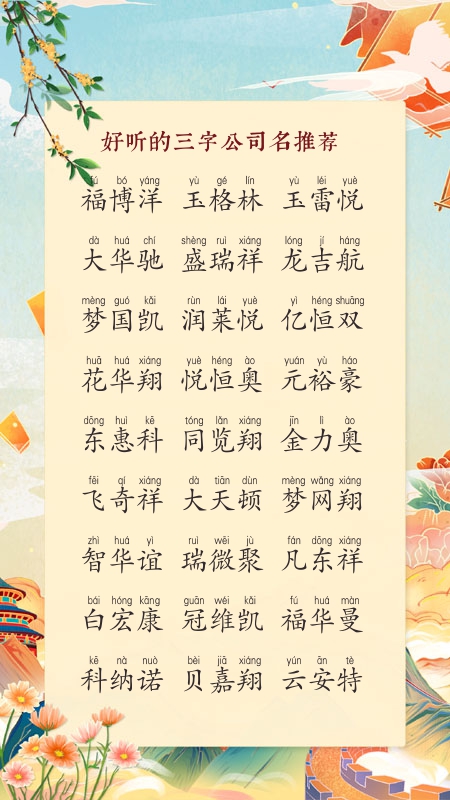 好听的三字公司名推荐
fú bó yáng yù gé lín yù léi yuè
福博洋 玉格林 玉雷悦
dà huá chí shèng ruì xiáng lóng jí háng
大华驰 盛瑞祥 龙吉航
mèng guó kǎi rùn lái yuè yì héng shuāng
梦国凯 润莱悦 亿恒双
huā huá xiáng yuè héng ào yuán yù háo
花华翔 悦恒奥 元裕豪
dōng huì kē tóng lǎn xiáng jīn lì ào
东惠科 同览翔 金力奥
fēi qí xiáng dà tiān dùn mèng wǎng xiáng
飞奇祥 大天顿 梦网翔
zhì huá yì ruì wēi jù fán dōng xiáng
智华谊 瑞微聚 凡东祥
bái hóng kāng guān wéi kǎi fú huá màn
白宏康 冠维凯 福华曼
kē nà nuò bèi jiā xiáng yún ān tè
科纳诺 贝嘉翔 云安特